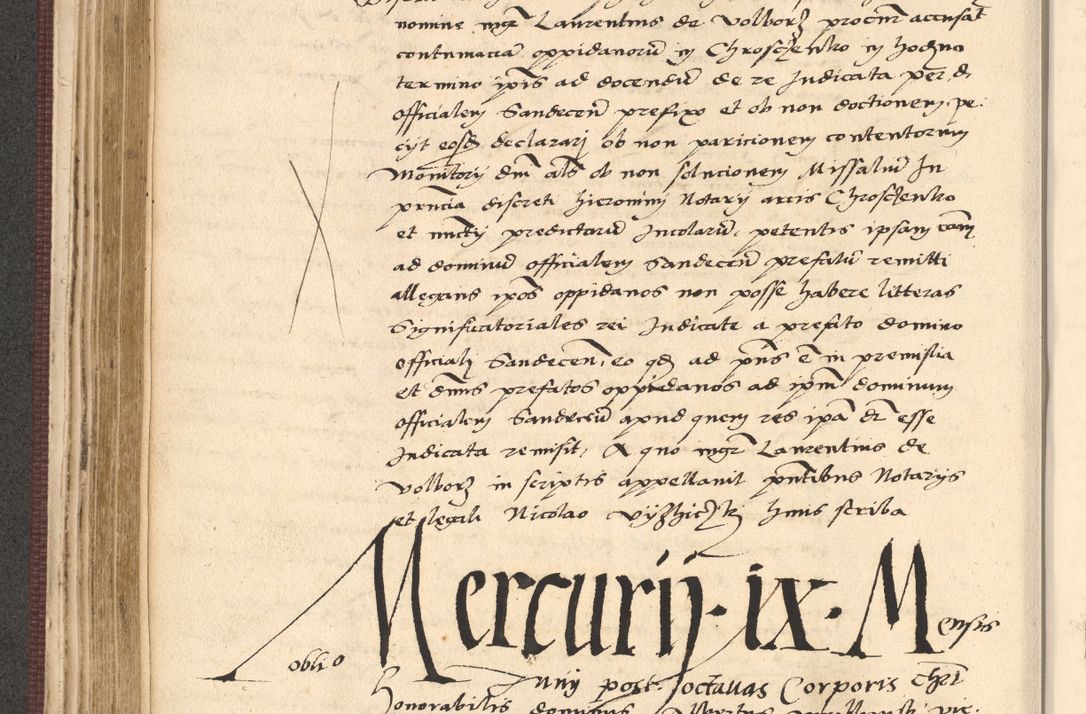 nomine mgr Laurentius de Volborz procur accusat
contumacia oppidanoru in Chrosczenko in hodno
termino ipis ad docendu de re Judicata per d.
Officialem Sandecen prefixo et ob non doctionem, pe.
cyt eosd declararj ob non paricionem contentorum
Monitorij dm als ob non solucionem Missaliu In
pntia discreti Hieronimi Notarij arcis Chrosczenko
et nuctij predictaru Incolaru, petentis ipsam cam
ad dominu officialem Sandecen prefatu remitti
allegans ipos oppidanos non posse habere litteras
Significatoriales rei Judicate a prefato domino
officialj Sandecen, eo qd ad pns e in premislia
et dnus prefatos oppidanos ad ipm dominum
officialem Sandecen apud quem res ipa dr esse
Judicata remisit, A quo mgr Laurentius de
Volborz in scriptis appellauit pntibus Notarijs
et legali Nicolao huius scriba
Mercurij · ix · Mensis
Junij post octauas Corporis Chri
Honorabilis dominus Albertus vic